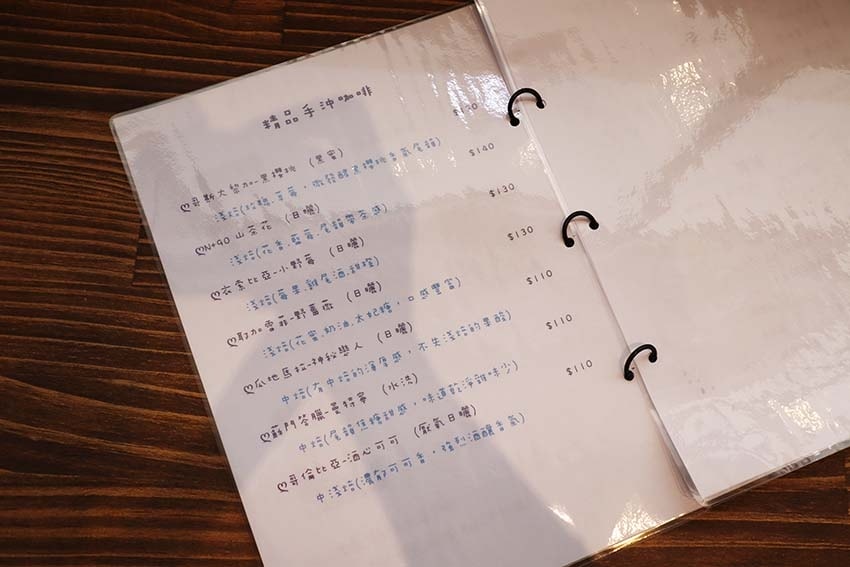 精品手沖咖啡
♡哥斯大黎加-黑櫻桃 (黑蜜)
淺焙(柑橘.草莓,微發酵黑櫻桃香氣尾韻)
♡N+90 山茶花 (日曬) $140
淺焙(花香.藍莓.尾韻帶茶感)
♡衣索比亞-小野莓 (日曬) $130
淺焙(莓果.雞尾酒.甜橙)
♡耶加雪菲-野薔薇 (日曬) $130
淺焙(花蜜.奶油.太妃糖,口感豐富)
♡瓜地馬拉-神秘戀人 (日曬) $110
中焙(有中焙的渾厚感,不失淺焙的果酸)
♡蘇門答臘-曼特寧 (水洗) $110
中焙(尾韻焦糖甜感,味道乾淨雜味少)
♡哥倫比亞-酒心可可 (厭氧日曬) $110
中淺焙(濃郁可可香,強烈酒釀香氣)